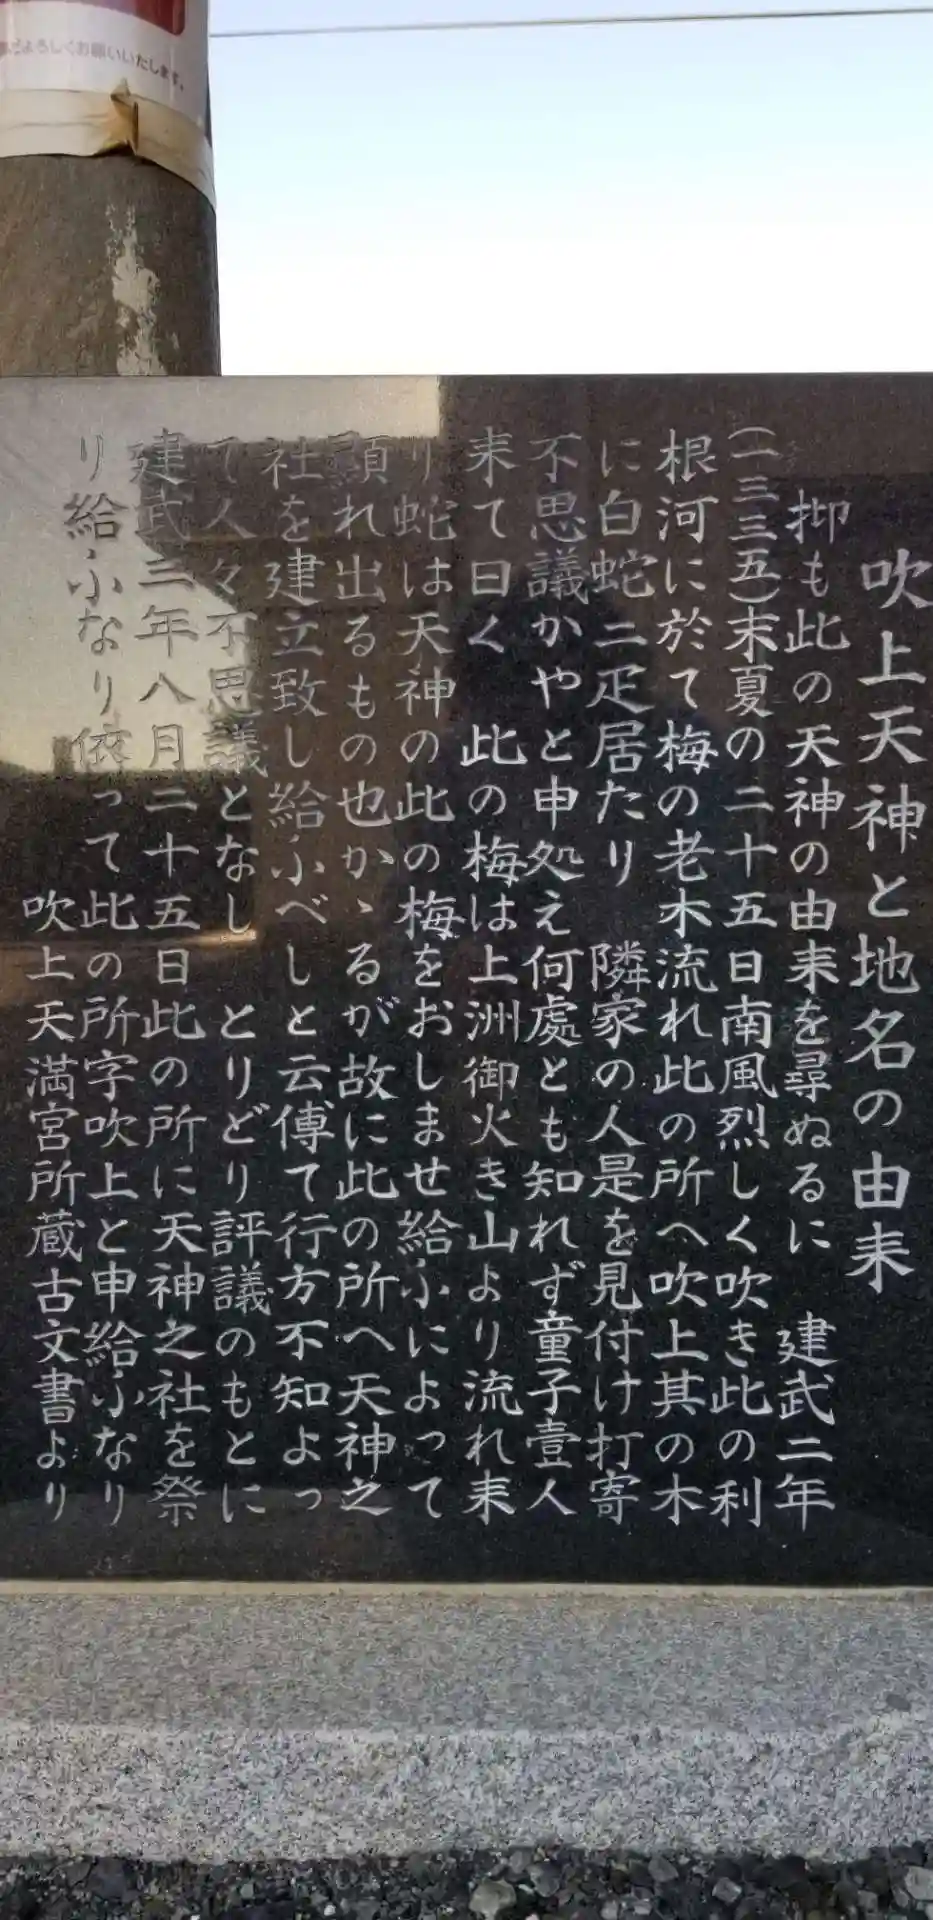 吹上天神と地名の由来
抑も此の天神の由来を尋ぬるに　建武二年
(一三三五)末夏の二十五日南風烈しく吹き此の利
根河に於て梅の老木流れ此の所へ吹上其の木
に白蛇二疋居たり　隣家の人是を見付け打寄
不思議かやと申処え何處とも知れず童子壹人
来て曰く　此の梅は上洲御火き山より流れ来
り蛇は天神の此の梅をおしませ給ふによって
顕れ出るもの也かゝるが故に此の所へ天神之
社を建立致し給ふべしと云傳て行方不知よっ
て人々不思議となし　とりどり評議のもとに
建武三年八月二十五日此の所に天神之社を祭
り給ふなり依って此の所字吹上と申給ふなり
吹上天満宮所蔵古文書より
よろしくお願いいたします。